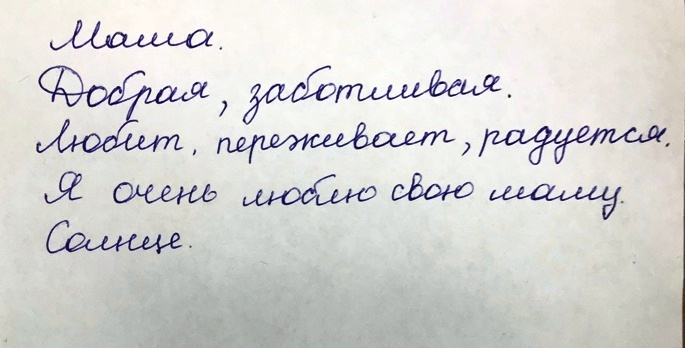 Мама.
Добрая, заботливая.
Любит, переживает, радуется.
Я очень люблю свою маму.
Солнце.